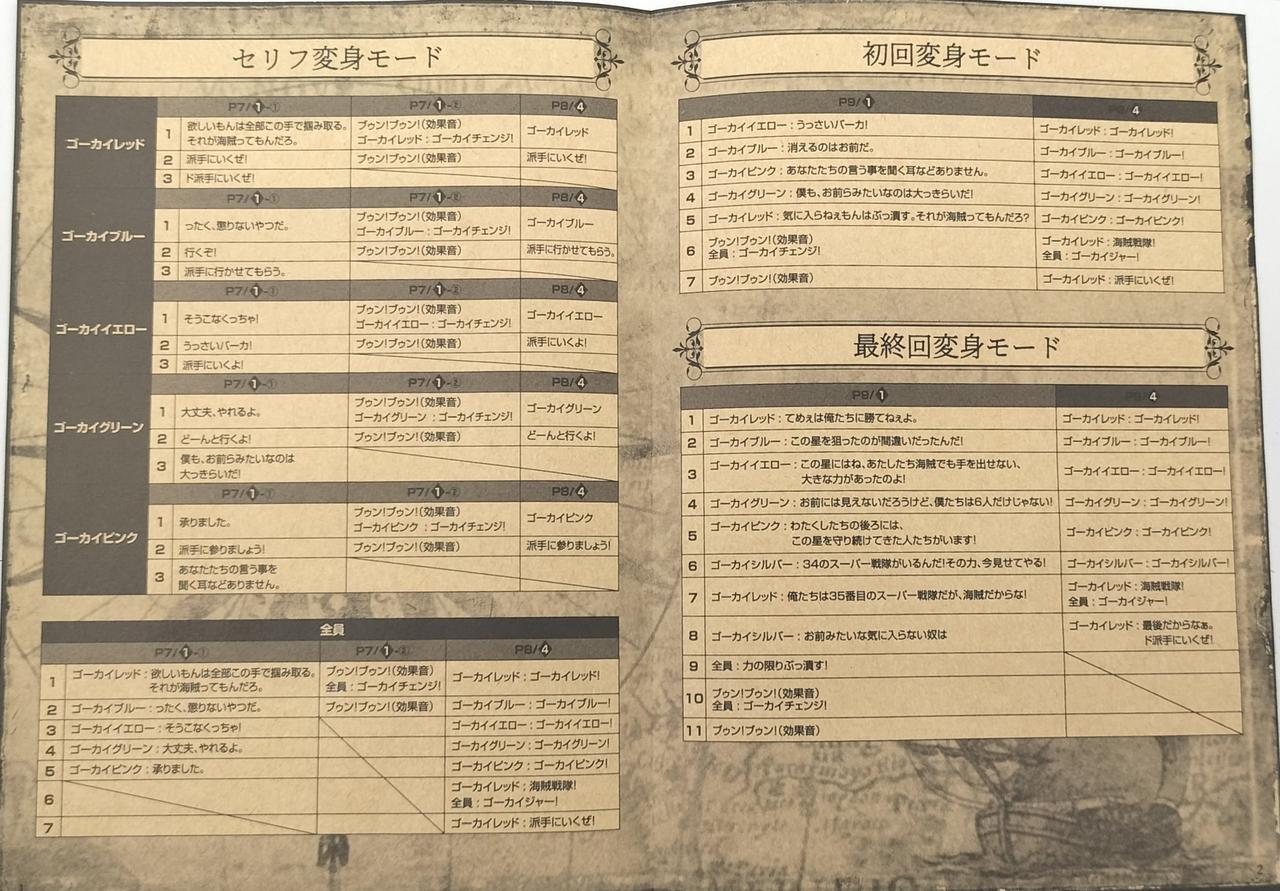 セリフ変身モード
P7/❶-① P7/❶-② P8/❹
ゴーカイレッド
1 欲しいもんは全部この手で掴み取る。 ブゥン!ブゥン!(効果音) ゴーカイレッド
それが海賊ってもんだろ。 ゴーカイレッド:ゴーカイチェンジ!
2 派手にいくぜ! ブゥン!ブゥン!(効果音) 派手にいくぜ!
3 ド派手にいくぜ!
P7/❶-① P7/❶-② P8/❹
ゴーカイブルー
1 ったく、懲りないやつだ。 ブゥン!ブゥン!(効果音) ゴーカイブルー
ゴーカイブルー:ゴーカイチェンジ!
2 行くぞ! ブゥン!ブゥン!(効果音) 派手に行かせてもらう。
3 派手に行かせてもらう。
P7/❶-① P7/❶-② P8/❹
ゴーカイイエロー
1 そうこなくっちゃ! ブゥン!ブゥン!(効果音) ゴーカイイエロー
ゴーカイイエロー:ゴーカイチェンジ!
2 うっさいバーカ! ブゥン!ブゥン!(効果音) 派手にいくよ!
3 派手にいくよ!
P7/❶-① P7/❶-② P8/❹
ゴーカイグリーン
1 大丈夫、やれるよ。 ブゥン!ブゥン!(効果音) ゴーカイグリーン
ゴーカイグリーン:ゴーカイチェンジ!
2 どーんと行くよ! ブゥン!ブゥン!(効果音) どーんと行くよ!
3 僕も、お前らみたいなのは
大っきらいだ!
P7/❶-① P7/❶-② P8/❹
ゴーカイピンク
1 承りました。 ブゥン!ブゥン!(効果音) ゴーカイピンク
ゴーカイピンク:ゴーカイチェンジ!
2 派手に参りましょう! ブゥン!ブゥン!(効果音) 派手に参りましょう!
3 あなたたちの言う事を
聞く耳などありません。
全員
P7/❶-① P7/❶-② P8/❹
1 ゴーカイレッド:欲しいもんは全部この手で掴み取る。 ブゥン!ブゥン!(効果音) ゴーカイレッド:ゴーカイレッド!
それが海賊ってもんだろ。 全員:ゴーカイチェンジ!
2 ゴーカイブルー:ったく、懲りないやつだ。 ブゥン!ブゥン!(効果音) ゴーカイブルー:ゴーカイブルー!
3 ゴーカイイエロー:そうこなくっちゃ! ゴーカイイエロー:ゴーカイイエロー!
4 ゴーカイグリーン:大丈夫、やれるよ。 ゴーカイグリーン:ゴーカイグリーン!
5 ゴーカイピンク:承りました。 ゴーカイピンク:ゴーカイピンク!
6 ゴーカイレッド:海賊戦隊!
全員:ゴーカイジャー!
7 ゴーカイレッド:派手にいくぜ!
初回変身モード
P9/❶ P9/❹
1 ゴーカイイエロー:うっさいバーカ! ゴーカイレッド:ゴーカイレッド!
2 ゴーカイブルー:消えるのはお前だ。 ゴーカイブルー:ゴーカイブルー!
3 ゴーカイピンク:あなたたちの言う事を聞く耳などありません。 ゴーカイイエロー:ゴーカイイエロー!
4 ゴーカイグリーン:僕も、お前らみたいなのは大っきらいだ! ゴーカイグリーン:ゴーカイグリーン!
5 ゴーカイレッド:気に入らねぇもんはぶっ潰す。それが海賊ってもんだろ? ゴーカイピンク:ゴーカイピンク!
6 ブゥン!ブゥン!(効果音) ゴーカイレッド:海賊戦隊!
全員:ゴーカイチェンジ! 全員:ゴーカイジャー!
7 ブゥン!ブゥン!(効果音) ゴーカイレッド:派手にいくぜ!
最終回変身モード
P9/❶ P9/❹
1 ゴーカイレッド:てめぇは俺たちに勝てねぇよ。 ゴーカイレッド:ゴーカイレッド!
2 ゴーカイブルー:この星を狙ったのが間違いだったんだ! ゴーカイブルー:ゴーカイブルー!
3 ゴーカイイエロー:この星にはね、あたしたち海賊でも手を出せない、 ゴーカイイエロー:ゴーカイイエロー!
大きな力があったのよ!
4 ゴーカイグリーン:お前には見えないだろうけど、僕たちは6人だけじゃない! ゴーカイグリーン:ゴーカイグリーン!
5 ゴーカイピンク:わたくしたちの後ろには、 ゴーカイピンク:ゴーカイピンク!
この星を守り続けてきた人たちがいます!
6 ゴーカイシルバー:34のスーパー戦隊がいるんだ!その力、今見せてやる! ゴーカイシルバー:ゴーカイシルバー!
7 ゴーカイレッド:俺たちは35番目のスーパー戦隊だが、海賊だからな! ゴーカイレッド:海賊戦隊!
全員:ゴーカイジャー!
8 ゴーカイシルバー:お前みたいな気に入らない奴は ゴーカイレッド:最後だからなぁ。
ド派手にいくぜ!
9 全員:力の限りぶっ潰す!
10 ブゥン!ブゥン!(効果音)
全員:ゴーカイチェンジ!
11 ブゥン!ブゥン!(効果音)
2